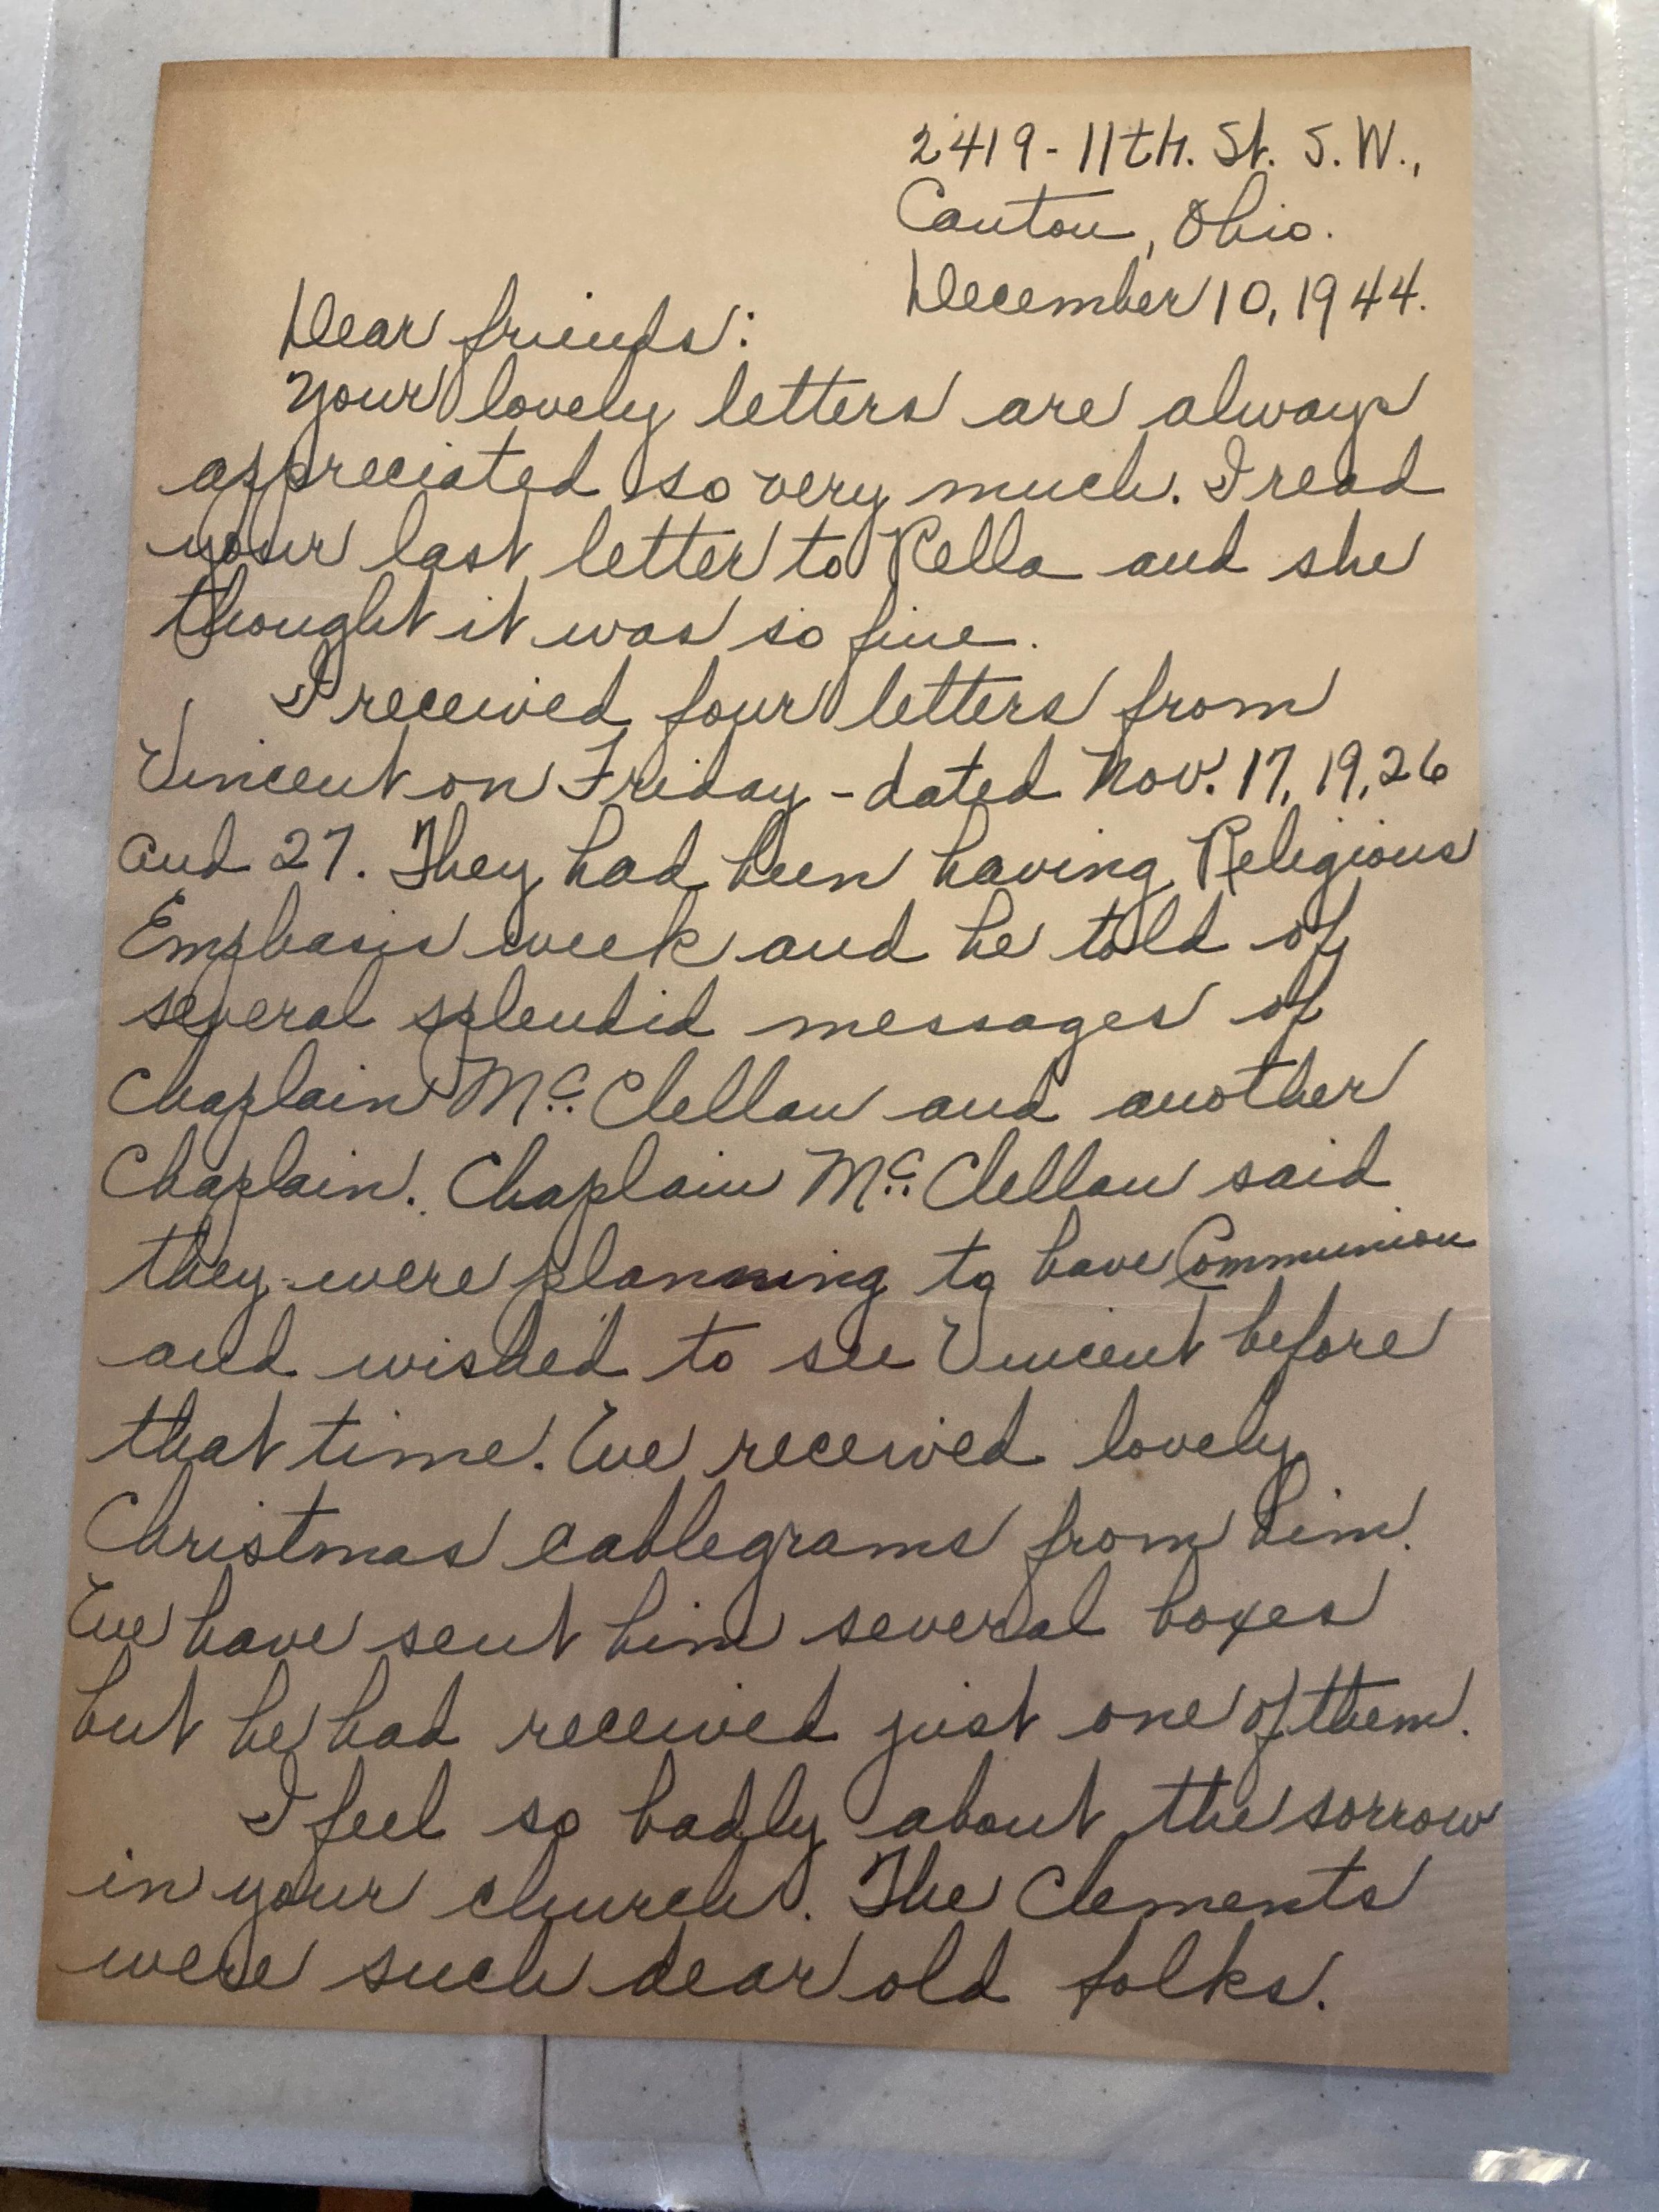 2419 - 11th. St. S. W.,
Canton, Ohio.
December 10, 1944.
Dear friends:
Your lovely letters are always
appreciated so very much. I read
your last letter to Rella and she
thought it was so fine.
I received four letters from
Vincent on Friday - dated Nov. 17, 19, 26
and 27. They had been having Religious
Emphasis week and he told of
several splendid messages of
Chaplain McClellan and another
Chaplain. Chaplain McClellan said
they were planning to have Communion
and wished to see Vincent before
that time. We received lovely
Christmas cablegrams from him.
We have sent him several boxes
but he had received just one of them.
I feel so badly about the sorrow
in your church. The Clements
were such dear old folks.